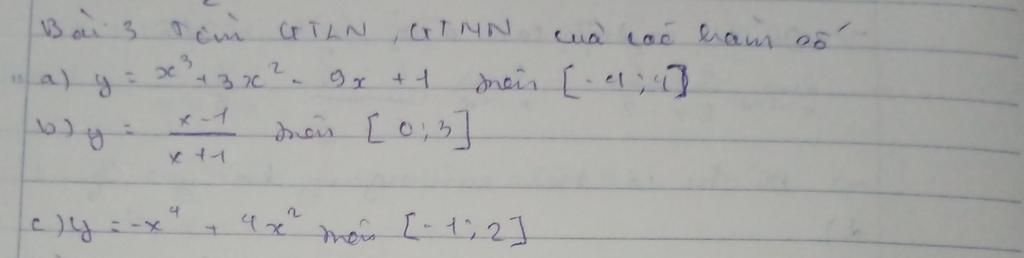 Bài 3 Tìm GTLN, GTNN của các hàm số
a) y = x³ + 3x² - 9x + 1 trên [-4; 4]
b) y = \frac{x-1}{x+1} trên [0; 3]
c) y = -x⁴ + 4x² trên [-1; 2]